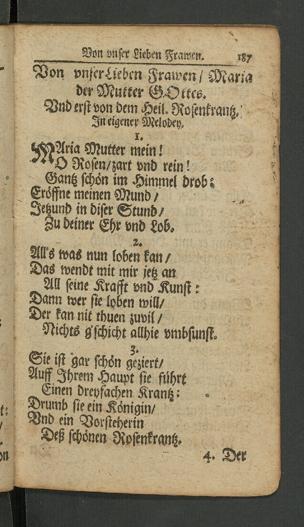 Von vnser Lieben Frawen. 187
Von vnser Lieben Frawen / Maria
der Mutter GOttes.
Vnd erst von dem Heil. Rosenkrantz.
In eigener Melodey.
1.
MAria Mutter mein!
O Rosen / zart vnd rein!
Gantz schön im Himmel drob:
Eröffne meinen Mund /
Jetzund in diser Stund /
Zu deiner Ehr vnd Lob.
2.
All's was nun loben kan /
Das wendt mit mir jetz an
All seine Krafft vnd Kunst:
Dann wer sie loben will /
Der kan nit thuen zuvil /
Nichts g'schicht allhie vmbsunst.
3.
Sie ist gar schön geziert /
Auff Ihrem Haupt sie führt
Einen dreyfachen Krantz:
Drumb sie ein Königin /
Vnd ein Vorsteherin
Deß schönen Rosenkrantz.
4. Der